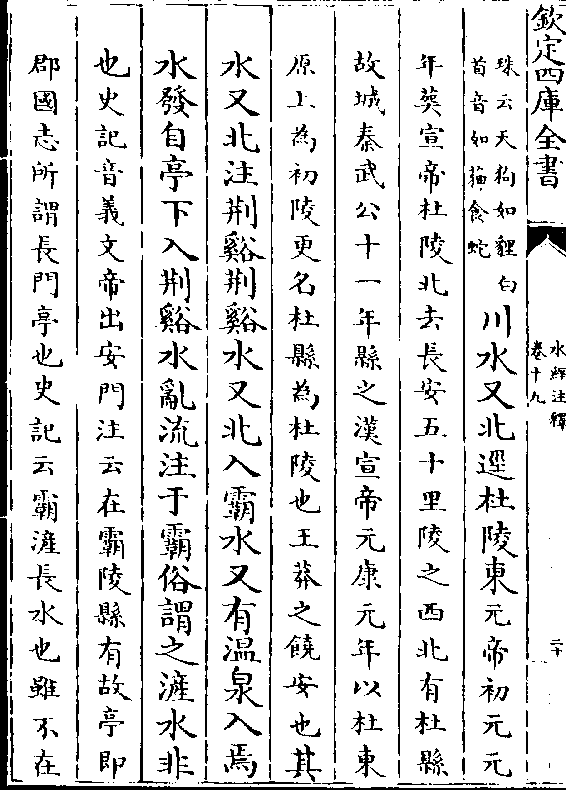 欽定四庫全書
水經注釋
卷十九
二十
珠云天狗如貍白
首音如猫食蛇
川水又北逕杜陵東元帝初元元
年葬宣帝杜陵北去長安五十里陵之西北有杜縣
故城秦武公十一年縣之漢宣帝元康元年以杜東
原上為初陵更名杜縣為杜陵也王莽之饒安也其
水又北注荆谿荆谿水又北入霸水又有溫泉入焉
水發自亭下入荆谿水亂流注于霸俗謂之滻水非
也史記音義文帝出安門注云在霸陵縣有故亭即
郡國志所謂長門亭也史記云霸滻長水也雖不在